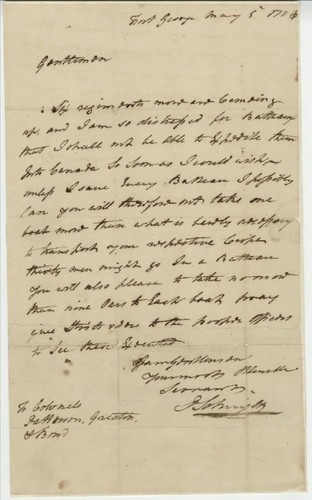 Fort George May 5th 1776
Gentlemen
Six regiments more are Comeing
up, and I am so distressed for Batteaus
that I shall not be able to Expedite them
into Canada so soon as I could wish,
unless I save Every Batteau I possibly
can you will therefore not take one
boat more then what is bearly necessary
to transport your respective Corps
thirty men might go In a Batteau
You will also please to take no more
than nine Oars to Each boat pray
give Strict orders to the Proper Officers
to See these Executed
I am Gentlemen
Your most Humble
Servant
Ph Schuyler
To Colonels
Patterson, Greaton
& Bond